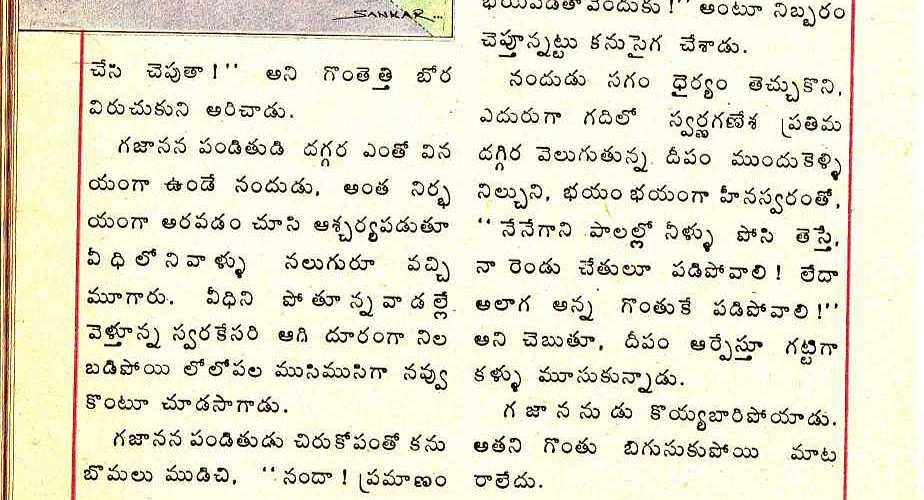 SANKAR...
చేసి చెపుతా!'' అని గొంతెత్తి బోర
విరుచుకుని అరిచాడు.
గజానన పండితుడి దగ్గర ఎంతో విన
యంగా ఉండే నందుడు, అంత నిర్భ
యంగా అరవడం చూసి ఆశ్చర్యపడుతూ
వీధిలోనివాళ్ళు నలుగురూ వచ్చి
మూగారు. వీధిని పోతూన్నవాడల్లే
వెళ్తూన్న స్వరకేసరి ఆగి దూరంగా నిల
బడిపోయి లోలోపల ముసిముసిగా నవ్వు
కొంటూ చూడసాగాడు.
గజానన పండితుడు చిరుకోపంతో కను
బొమలు ముడిచి, ''నందా! ప్రమాణం
భయపడతావెందుకు!'' అంటూ నిబ్బరం
చెప్తూన్నట్టు కనుసైగ చేశాడు.
నందుడు సగం ధైర్యం తెచ్చుకొని,
ఎదురుగా గదిలో స్వర్ణగణేశ ప్రతిమ
దగ్గిర వెలుగుతున్న దీపం ముందుకెళ్ళి
నిల్చుని, భయంభయంగా హీనస్వరంతో,
''నేనేగాని పాలల్లో నీళ్ళు పోసి తెస్తే,
నా రెండు చేతులూ పడిపోవాలి! లేదా
అలాగ అన్న గొంతుకే పడిపోవాలి!''
అని చెబుతూ, దీపం ఆర్పేస్తూ గట్టిగా
కళ్ళు మూసుకున్నాడు.
గజాననుడు కొయ్యబారిపోయాడు.
అతని గొంతు బిగుసుకుపోయి మాట
రాలేదు.